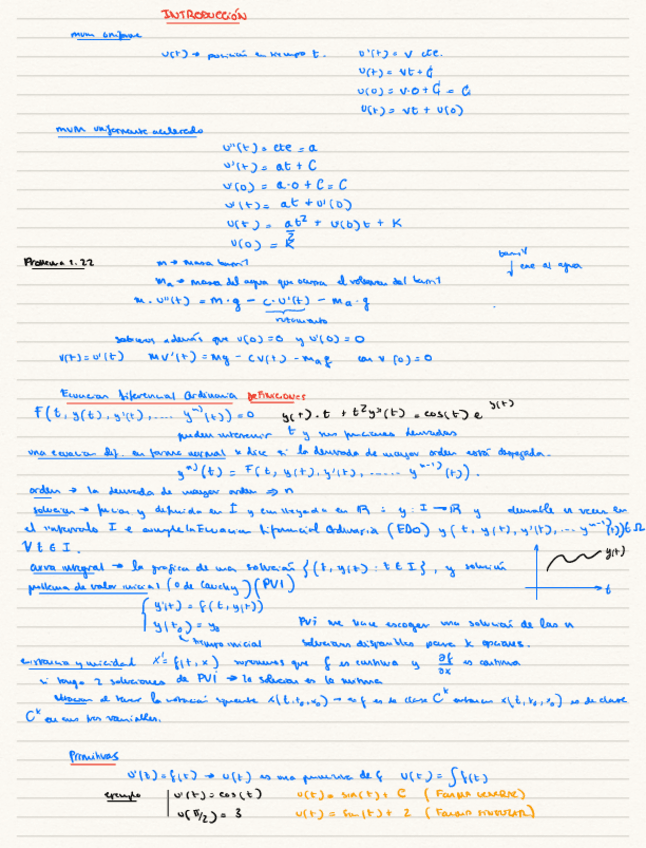 INTRODUCCIÓN
mum uniforme
u(t) → posición en tiempo t. u'(t) = v cte.
u(t) = vt + C
u(0) = v·0 + C = C
u(t) = vt + u(0)
mum uniformemente acelerado
u''(t) = cte = a
u'(t) = at + C
u'(0) = a·0 + C = C
u'(t) = at + u'(0)
u(t) = at²/2 + u'(0)t + K
u(0) = K
Problema 1.22 m → masa barril
barril
↓ cae al agua
ma → masa del agua que ocupa el volumen del barril
m·u''(t) = m·g - c·u'(t) - ma·g
rozamiento
sabemos además que u(0)=0 y u'(0)=0
v(t)=u'(t) mv'(t) = mg - cv(t) - mag con v(0)=0
Ecuación Diferencial Ordinaria DEFINICIONES
F(t, y(t), y'(t), .... yⁿ⁾(t)) = 0 y(t)·t + t²y'(t) = cos(t) e^y(t)
pueden intervenir t y sus funciones derivadas
una ecuación dif. en forma normal se dice si la derivada de mayor orden está despejada.
yⁿ⁾(t) = F(t, y(t), y'(t), ..... yⁿ⁻¹⁾(t)).
orden → la derivada de mayor orden ⇒ n
solución → función y definida en I y con llegada en ℝ : y: I → ℝ y derivable n veces en
el intervalo I e cumple la Ecuación Diferencial Ordinaria (EDO) y (t, y(t), y'(t), ... yⁿ⁻¹⁾(t)) ∈ Ω
∀ t ∈ I.
curva integral → la gráfica de una solución {(t, y(t)) : t ∈ I}, y solución
y(t)
t
problema de valor inicial (o de Cauchy) (PVI)
y'(t) = f(t, y(t))
y(t₀) = y₀
tiempo inicial
PVI me hace escoger una solución de las n
soluciones disponibles para k opciones.
existencia y unicidad x' = f(t, x) suponemos que f es continua y ∂f/∂x es continua
si tengo 2 soluciones de PVI → la solución es la misma
la notación siguiente x(t, t₀, x₀) → si f es de clase Cᵏ entonces x(t, t₀, x₀) es de clase
Cᵏ en sus tres variables.
Primitivas
u'(t) = f(t) → u(t) es una primitiva de f u(t) = ∫f(t)
ejemplo u'(t) = cos(t) u(t) = sin(t) + C (FORMA GENERAL)
u(π/2) = 3 u(t) = sin(t) + 2 (FORMA SINGULAR)